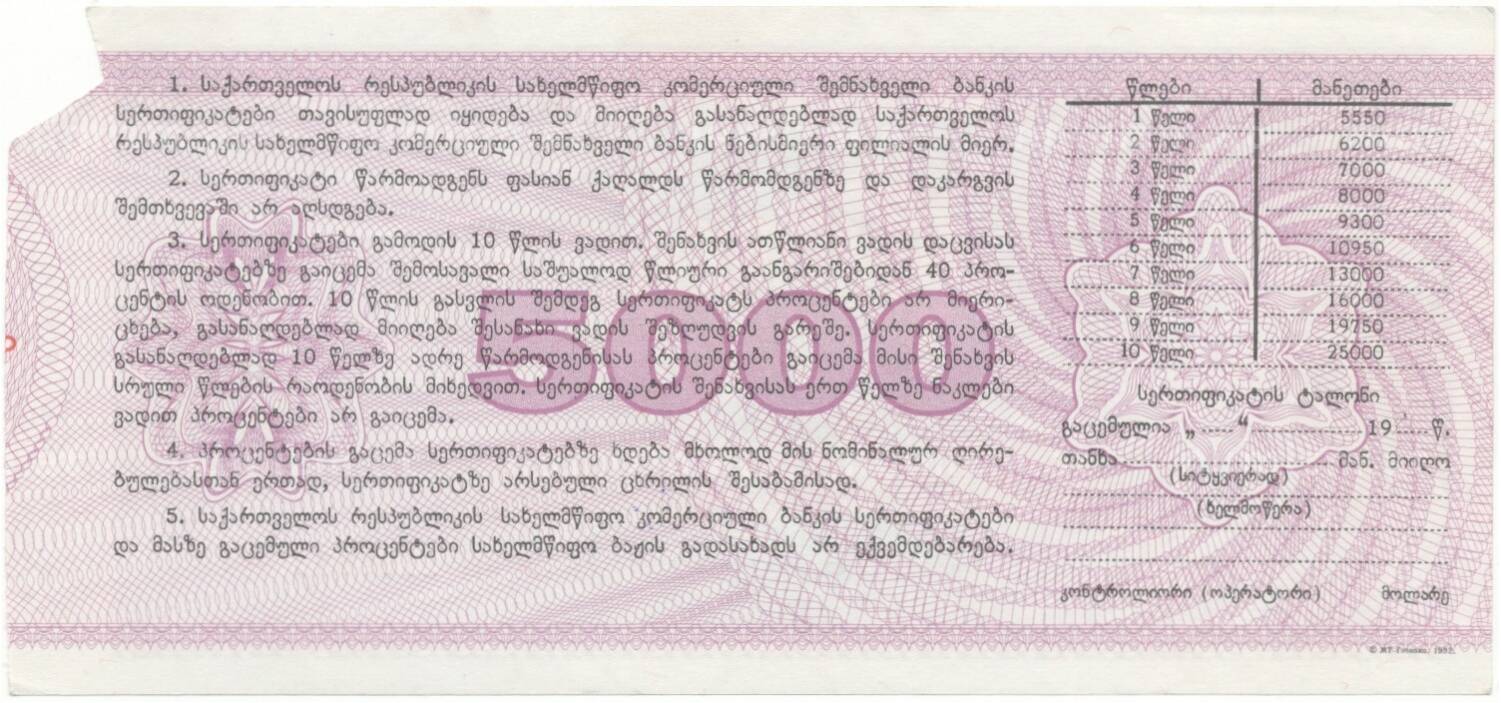 1. საქართველოს რესპუბლიკის სახელმწიფო კომერციული შემნახველი ბანკის
სერთიფიკატები თავისუფლად იყიდება და მიიღება გასანაღდებლად საქართველოს
რესპუბლიკის სახელმწიფო კომერციული შემნახველი ბანკის ნებისმიერი ფილიალის მიერ.
2. სერთიფიკატი წარმოადგენს ფასიან ქაღალდს წარმომდგენზე და დაკარგვის
შემთხვევაში არ აღსდგება.
3. სერთიფიკატები გამოდის 10 წლის ვადით. შენახვის ათწლიანი ვადის დაცვისას
სერთიფიკატებზე გაიცემა შემოსავალი საშუალოდ წლიური გაანგარიშებიდან 40 პრო-
ცენტის ოდენობით. 10 წლის გასვლის შემდეგ სერთიფიკატს პროცენტები არ მიერი-
ცხება, გასანაღდებლად მიიღება შესანახი ვადის შეზღუდვის გარეშე. სერთიფიკატის
გასანაღდებლად 10 წელზე ადრე წარმოდგენისას პროცენტები გაიცემა მისი შენახვის
სრული წლების რაოდენობის მიხედვით. სერთიფიკატის შენახვისას ერთ წელზე ნაკლები
ვადით პროცენტები არ გაიცემა.
4. პროცენტების გაცემა სერთიფიკატებზე ხდება მხოლოდ მის ნომინალურ ღირე-
ბულებასთან ერთად, სერთიფიკატზე არსებული ცხრილის შესაბამისად.
5. საქართველოს რესპუბლიკის სახელმწიფო კომერციული ბანკის სერთიფიკატები
და მასზე გაცემული პროცენტები სახელმწიფო ბაჟის გადასახადს არ ექვემდებარება.
5000
წლები მანეთები
1 წელი 5550
2 წელი 6200
3 წელი 7000
4 წელი 8000
5 წელი 9300
6 წელი 10950
7 წელი 13000
8 წელი 16000
9 წელი 19750
10 წელი 25000
სერთიფიკატის ტალონი
გაცემულია „ “ 19 წ.
თანხა მან. მიიღო
(სიტყვიერად)
(ხელმოწერა)
კონტროლიორი (ოპერატორი) მოლარე
© МТ Гознака. 1992.